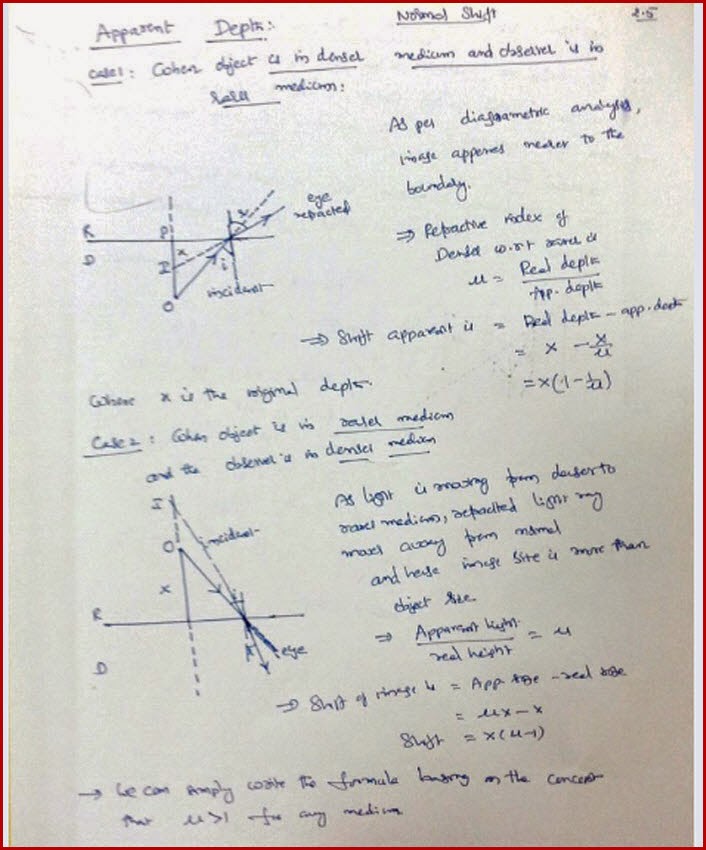 Apparent Depth:
Normal Shift
2.5
Case1: When object is in denser medium and observer is in
rarer medium:
As per diagrammatic analysis,
image apperes nearer to the
boundary.
R
D
P
I
O
x
i
r
eye
refracted
incident
⇒ Refractive index of
Denser w.r.t rarer is
u = Real depth / App. depth
⇒ Shift apparent is = Real depth - app. depth
= x - x/u
= x(1 - 1/u)
Where x is the original depth.
Case2: When object is in rarer medium
and the observer is in denser medium
I
O
x
R
D
incident
i
r
eye
As light is moving from denser to
rarer medium, refracted light ray
moves away from normal
and hence image size is more than
object size.
⇒ Apparent hight / real height = u
⇒ Shift of image is = App size - real size
= ux - x
Shift = x(u-1)
→ We can simply write the formula basing on the concept
that u>1 for any medium